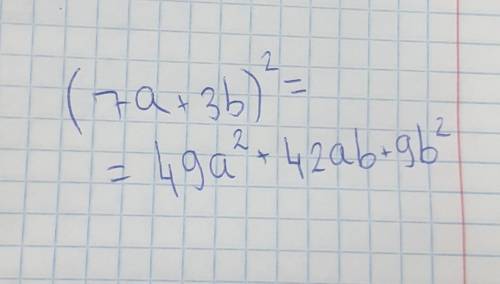 (7a + 3b)² =
= 49a² + 42ab + 9b²